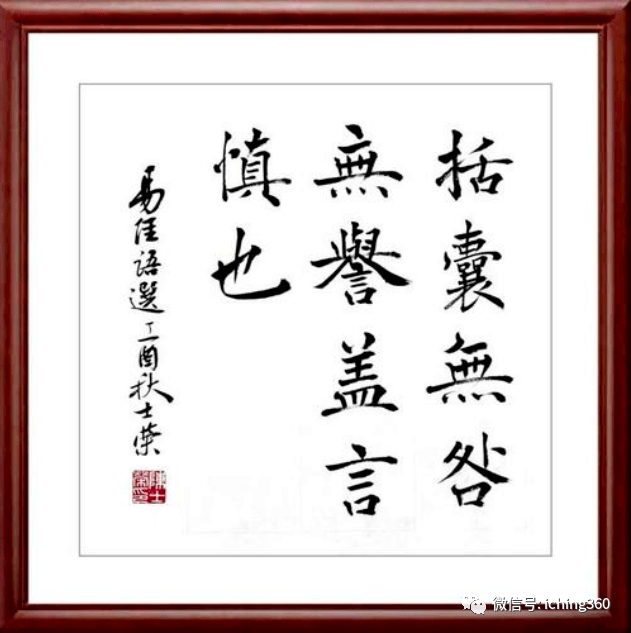 括囊無咎
無譽盖言
慎也
易经語選丁酉秋士荣
陳士榮印
微信号: iching360